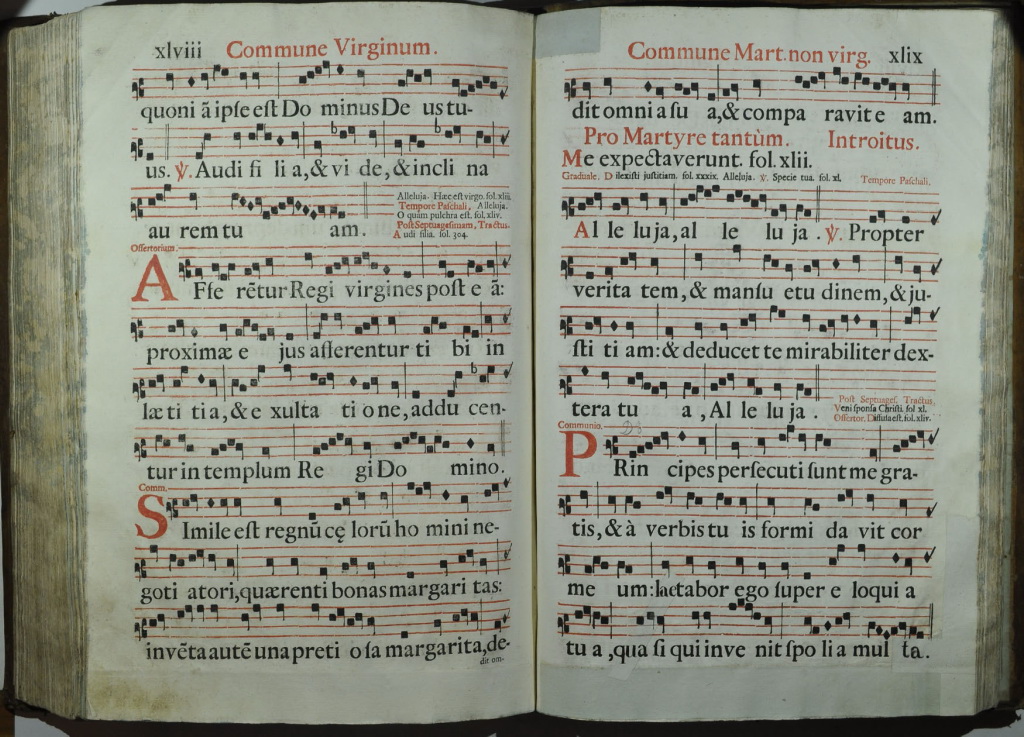 xlviii Commune Virginum.
quoni ā ipſe eſt Do minus De us tu-
us. ℣. Audi fi li a, & vi de, & incli na
au rem tu am.
Alleluja. Hæc eſt virgo. fol. xliii.
Tempore Paſchali, Alleluja.
O quàm pulchra eſt. fol. xliv.
Poſt Septuageſimam, Tractus.
Audi filia. fol. 304.
Offertorium.
AFfe rētur Regi virgines poſt e ā:
proximæ e jus afferentur ti bi in
læti ti a, & e xulta ti one, addu cen-
tur in templum Re gi Do mino.
Comm.
SImile eſt regnū cę lorū ho mini ne-
goti atori, quærenti bonas margari tas:
invēta autē una preti o ſa margarita, de-
dit om-
Commune Mart. non virg. xlix
dit omni a ſu a, & compa ravit e am.
Pro Martyre tantùm. Introitus.
Me expectaverunt. fol. xlii.
Graduale, Dilexiſti juſtitiam. fol. xxxix. Alleluja. ℣. Specie tua. fol. xl.
Tempore Paſchali.
Al le lu ja, al le lu ja. ℣. Propter
verita tem, & manſu etu dinem, & ju-
ſti ti am: & deducet te mirabiliter dex-
tera tu a, Al le lu ja.
Poſt Septuageſ. Tractus,
Veni ſponſa Chriſti. fol xl.
Offertor. Diffuſa eſt. fol. xliv.
Communio.
PRin cipes perſecuti ſunt me gra-
tis, & à verbis tu is formi da vit cor
me um: lætabor ego ſuper e loqui a
tu a, qua ſi qui inve nit ſpo li a mul ta.